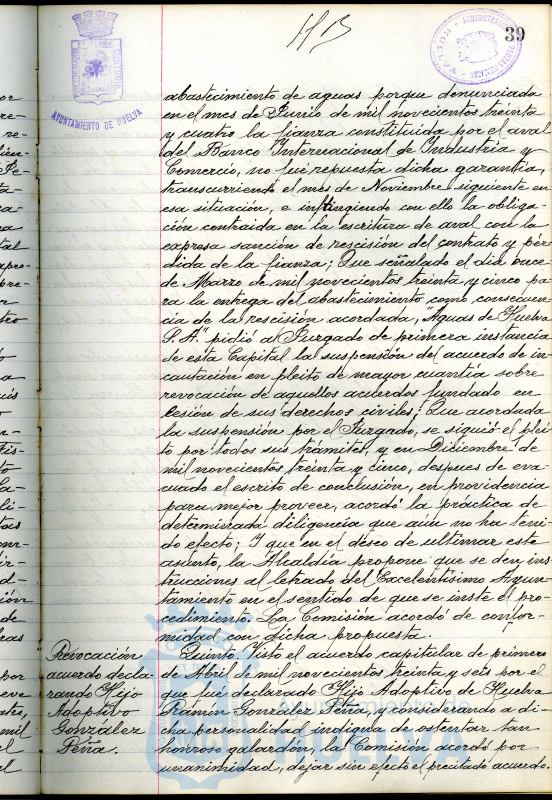 1513
39
AYUNTAMIENTO DE HUELVA
abastecimiento de aguas porque denunciada
en el mes de Junio de mil novecientos treinta
y cuatro la fianza constituida por el aval
del Banco Internacional de Industria y
Comercio, no fué repuesta dicha garantía,
transcurriendo el mes de Noviembre siguiente en
esa situación, e infringiendo con ello la obliga-
ción contraida en la escritura de aval con la
expresa sanción de rescisión del contrato y pér-
dida de la fianza; Que señalado el dia once
de Marzo de mil novecientos treinta y cinco pa-
ra la entrega del abastecimiento como consecuen-
cia de la rescisión acordada, "Aguas de Huelva
S. A." pidió al Juzgado de primera instancia
de esta Capital la suspensión del acuerdo de in-
cautación en pleito de mayor cuantía sobre
revocación de aquellos acuerdos fundado en
lesión de sus derechos civiles; Que acordada
la suspensión por el Juzgado, se siguió el plei-
to por todos sus trámites, y en Diciembre de
mil novecientos treinta y cinco, despues de eva-
cuado el escrito de conclusión, en providencia
para mejor proveer, acordó la práctica de
determinada diligencia que aún no ha teni-
do efecto; Y que en el deseo de ultimar este
asunto, la Alcaldía propone que se den ins-
trucciones al letrado del Excelentísimo Ayun-
tamiento en el sentido de que se inste el pro-
cedimiento. La Comisión acordó de confor-
midad con dicha propuesta.
Revocación
acuerdo decla-
rando Hijo
Adoptivo
González
Peña.
Quinto. Visto el acuerdo capitular de primero
de Abril de mil novecientos treinta y seis por el
que fué declarado Hijo Adoptivo de Huelva
Ramón González Peña, y considerando a di-
cha personalidad indigna de ostentar tan
honroso galardón, la Comisión acordó por
unanimidad, dejar sin efecto el precitado acuerdo.